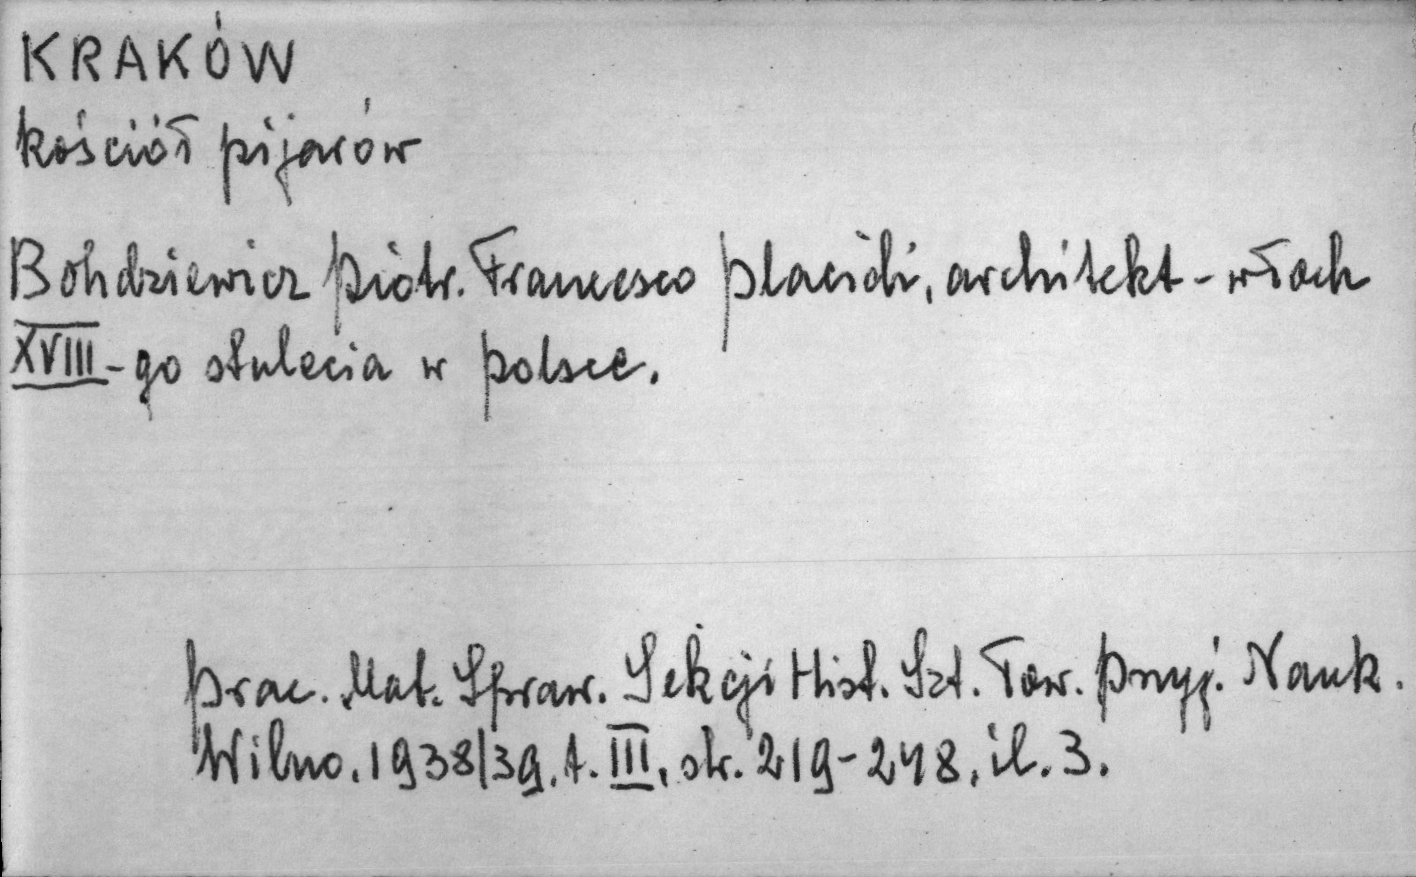 KRAKÓW
kościół pijarów
Bohdziewicz Piotr. Francesco Placidi, architekt - włoch
XVIII-go stulecia w Polsce.
Prac. Mat. Spraw. Sekcji Hist. Szt. Tow. Przyj. Nauk.
Wilno. 1938/39. t. III. str. 219-248, il. 3.